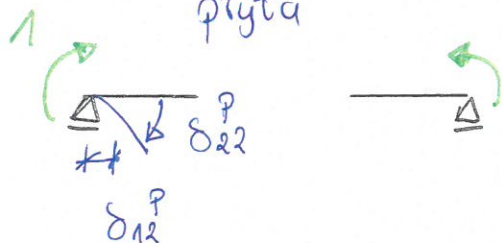 płyta
1
δ₂₂ᴾ
δ₁₂ᴾ